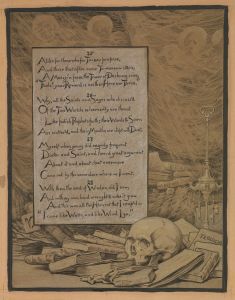 25
Alike for those who for To-day prepare,
And those that after some To-morrow stare,
A Muezzin from the Tower of Darkness cries,
"Fools! your Reward is neither Here nor There."
26
Why, all the Saints and Sages who discuss'd
Of the Two Worlds so learnedly are thrust
Like foolish Prophets forth; their Words to Scorn
Are scatter'd, and their Mouths are stopt with Dust.
27
Myself when young did eagerly frequent
Doctor and Saint, and heard great argument
About it and about: but evermore
Came out by the same door where in I went.
28
With them the seed of Wisdom did I sow,
And with my own hand wrought to make it grow;
And this was all the Harvest that I reap'd—
"I came like Water, and like Wind I go."